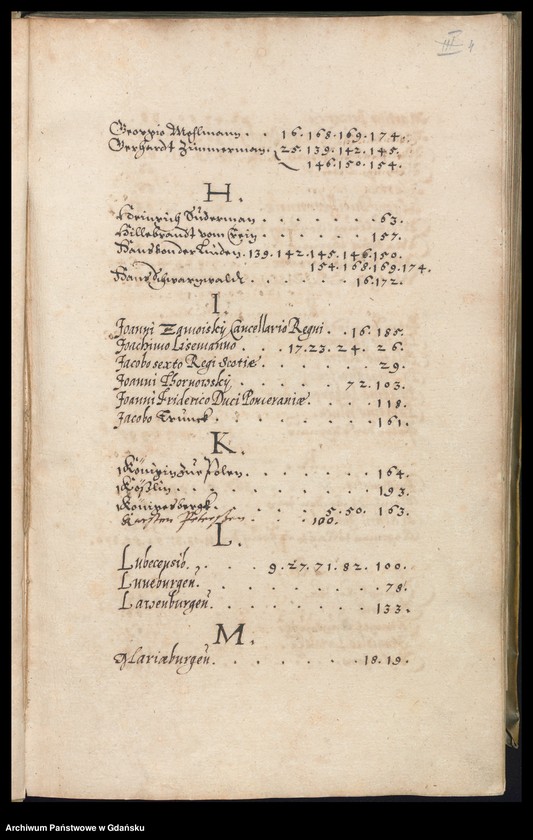 III 4
Georgio Moslmann . . 16. 168. 169. 174.
Gerhardt Zimmerman. 25. 139. 142. 145.
146. 150. 154.
H.
Heinrich Süderman . . . . . . 63.
Hillebrandt vom . . . . . 157.
Hans von der Linden. 139. 142. 145. 146. 150.
154. 168. 169. 174.
Hans Schwarzwaldt . . . . . 16. 172.
I.
Joanni Zamoisky Cancellario Regni . . 16. 185.
Joachimo Lisemanno . . . 17. 23. 24. 26.
Jacobo sexto Regi Scotiæ . . . . . 29.
Joanni Thornowsky . . . . . 72. 103.
Joanni Friderico Duci Pomeraniæ . . . . 118.
Jacobo Trunck . . . . . . 161.
K.
Königin zur Polen . . . . . . 164.
Kößlin . . . . . . . 193.
Königesbergk . . . . . 5. 50. 163.
Karsten Peterssen . . . 100.
L.
Lubecensib. . . . 9. 27. 71. 82. 100.
Luneburgen̄ . . . . . . . 78.
Lawenburgen̄ . . . . . . . 133.
M.
Mariæburgen̄ . . . . . . 18. 19.
Archiwum Państwowe w Gdańsku